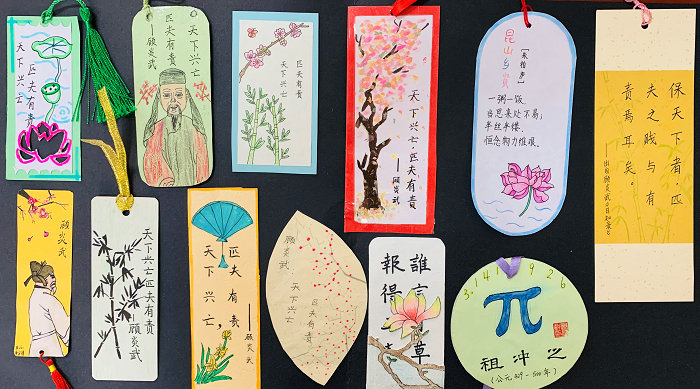 天下兴亡
匹夫有责
——顾炎武
天下兴亡
匹夫有责
——顾炎武
匹夫有责
天下兴亡
天下兴亡·匹夫有责
——顾炎武
昆山乡贤
【朱柏庐】
一粥一饭，
当思来处不易；
半丝半缕，
恒念物力维艰。
保天下者，匹
夫之贱与有
责焉耳矣。
顾炎武
天下兴亡匹夫有责
——顾炎武
匹夫有责
天下兴亡，
——顾炎武
顾炎武
天下兴亡
匹夫有责
誰言
草
報得
3.1415926
π
祖冲之
(公元429-500年)